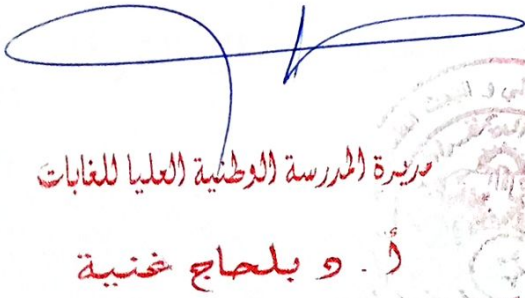 مديرة المدرسة الوطنية العليا للغابات
أ. د بلحاج غنية